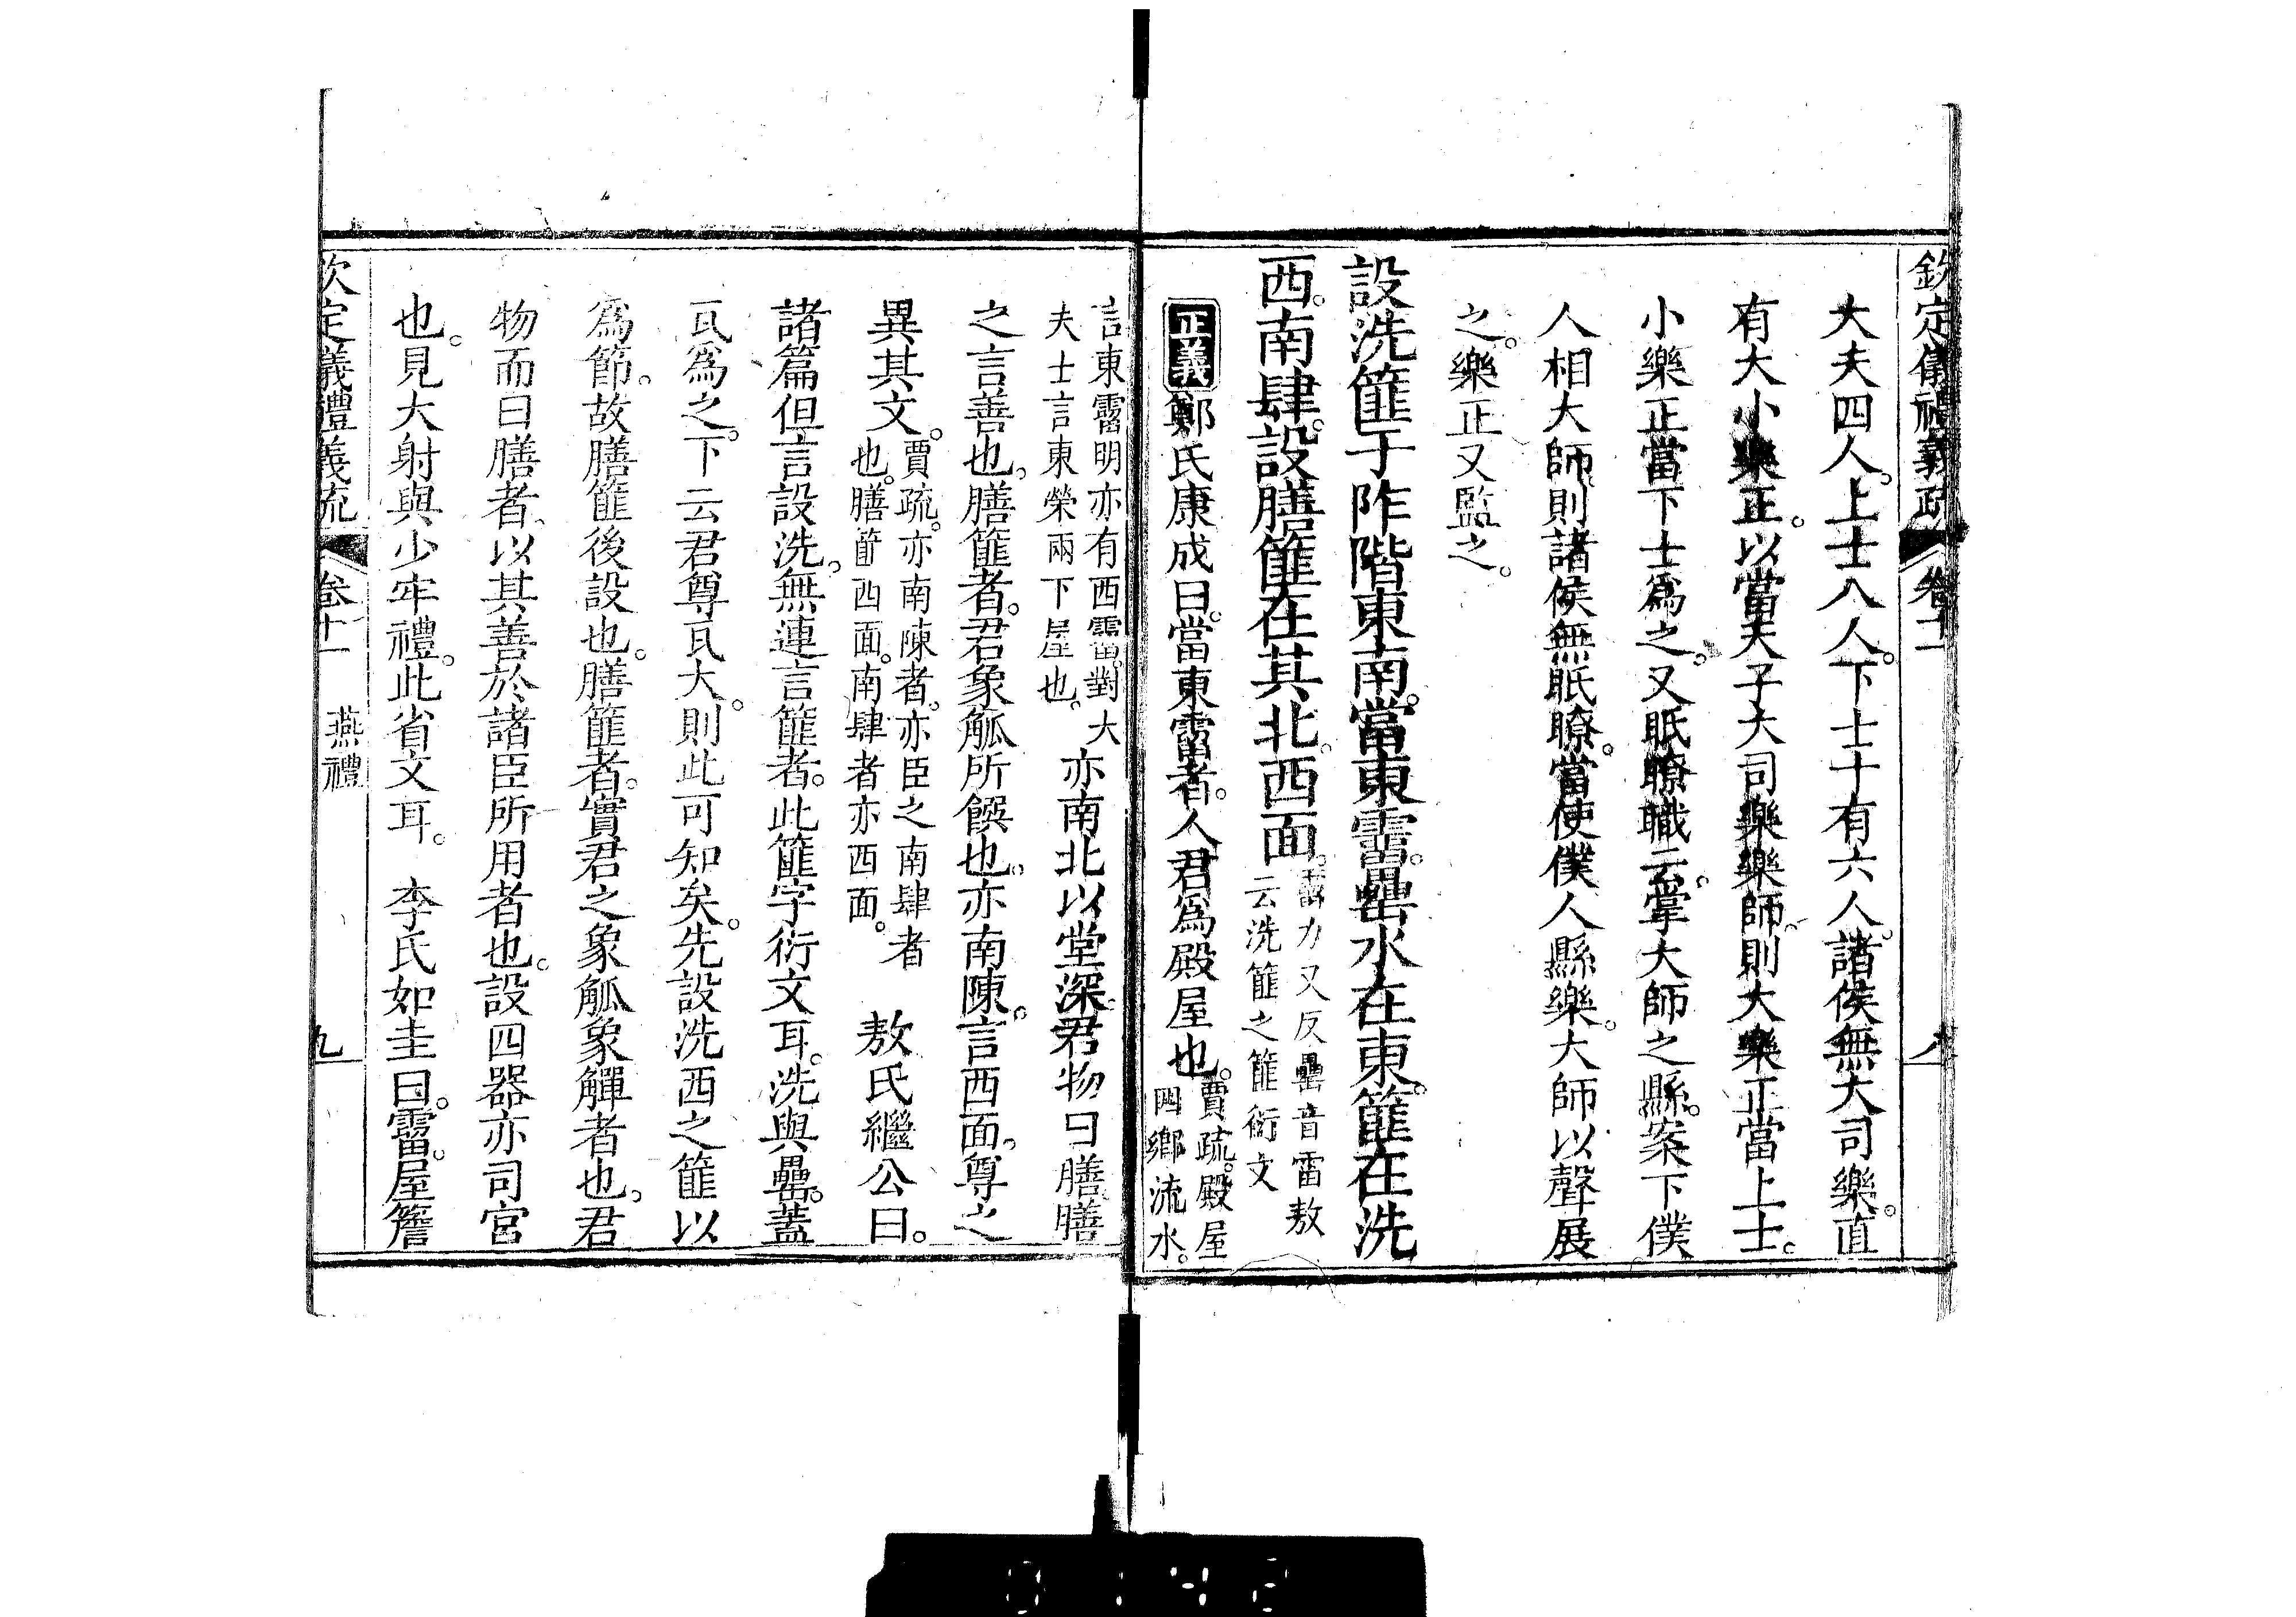 欽定儀禮義疏 卷十一
大夫四人。上士八人。下士十有六人。諸侯無大司樂。直
有大小樂正。以當天子大司樂樂師。則大樂正當上士。
小樂正當下士爲之。又眂瞭職云。掌大師之縣。案下僕
人相大師。則諸侯無眂瞭。當使僕人縣樂。大師以聲展
之。樂正又監之。
設洗篚于阼階東南。當東霤。罍水在東。篚在洗
西。南肆。設膳篚在其北。西面。霤力又反罍音雷敖
云洗篚之篚衍文
正義鄭氏康成曰。當東霤者。人君爲殿屋也。賈疏。殿屋
四鄉流水。
言東霤明亦有西霤。對大
夫士言東榮兩下屋也。亦南北以堂深。君物曰膳膳
之言善也。膳篚者。君象觚所饌也。亦南陳。言西面。尊之
異其文。賈疏。亦南陳者。亦臣之南肆者
也。膳篚西面。南肆者亦西面。敖氏繼公曰。
諸篇但言設洗。無連言篚者。此篚字衍文耳。洗與罍。蓋
瓦爲之。下云君尊瓦大。則此可知矣。先設洗西之篚以
爲節。故膳篚後設也。膳篚者。實君之象觚象觶者也。君
物而曰膳者。以其善於諸臣所用者也。設四器亦司宮
也。見大射與少牢禮。此省文耳。 李氏如圭曰。霤。屋簷
欽定儀禮義疏 卷十一 燕禮 九